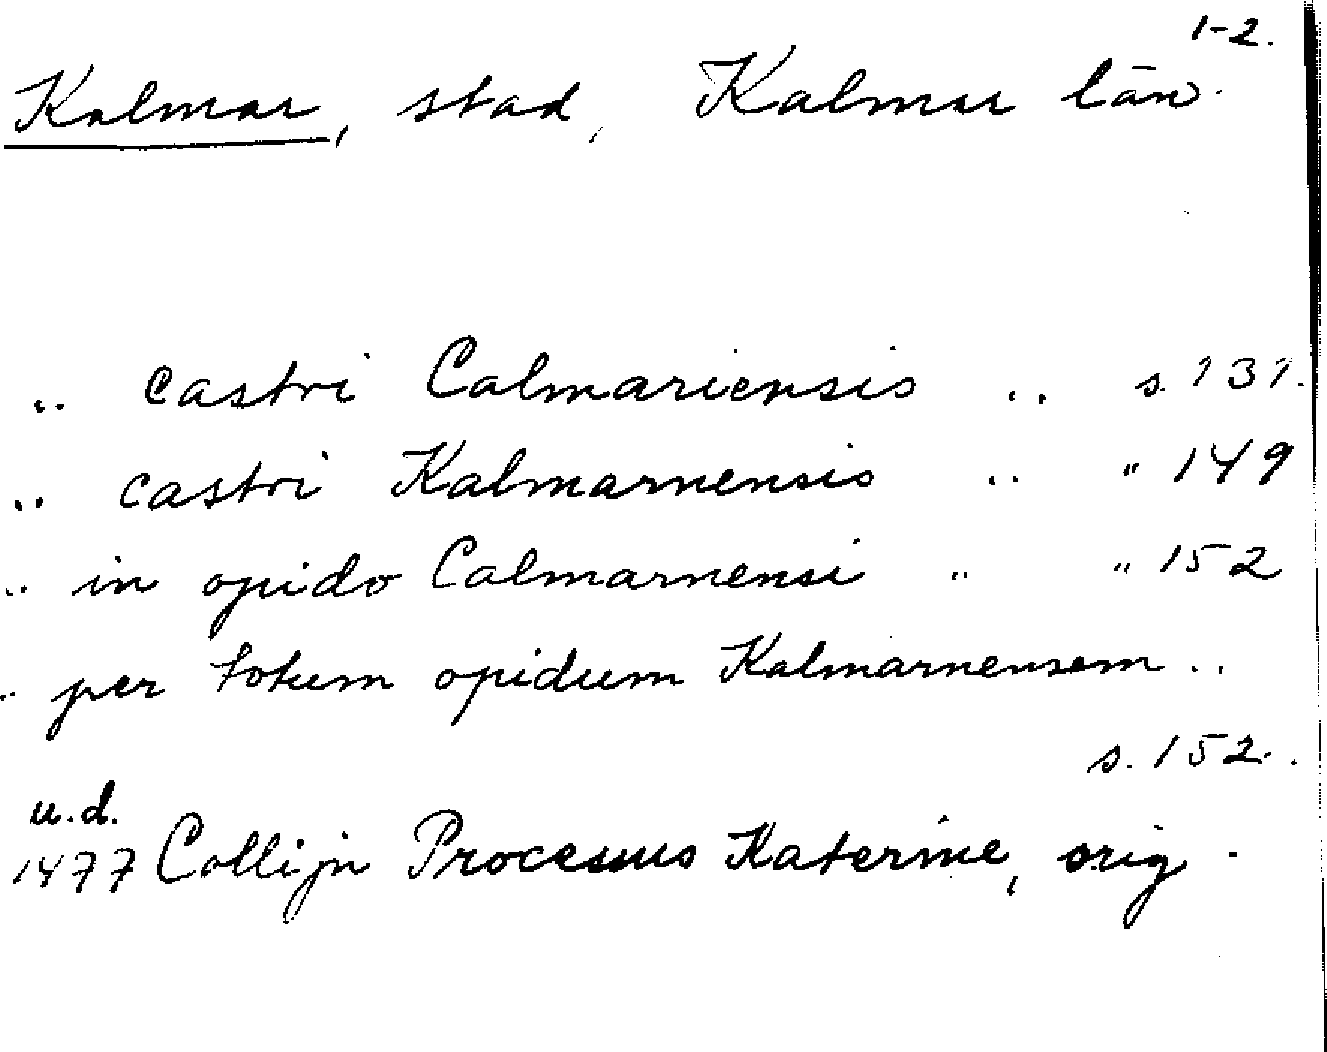 1-2.
Kalmar, stad, Kalmar län.
.. castri Calmariensis .. s. 131.
.. castri Kalmarnensis .. " 149
.. in opido Calmarnensi .. " 152
.. per totum opidum Kalmarnensem ..
s. 152.
u.d.
1477 Collijn Processus Katerine, orig.